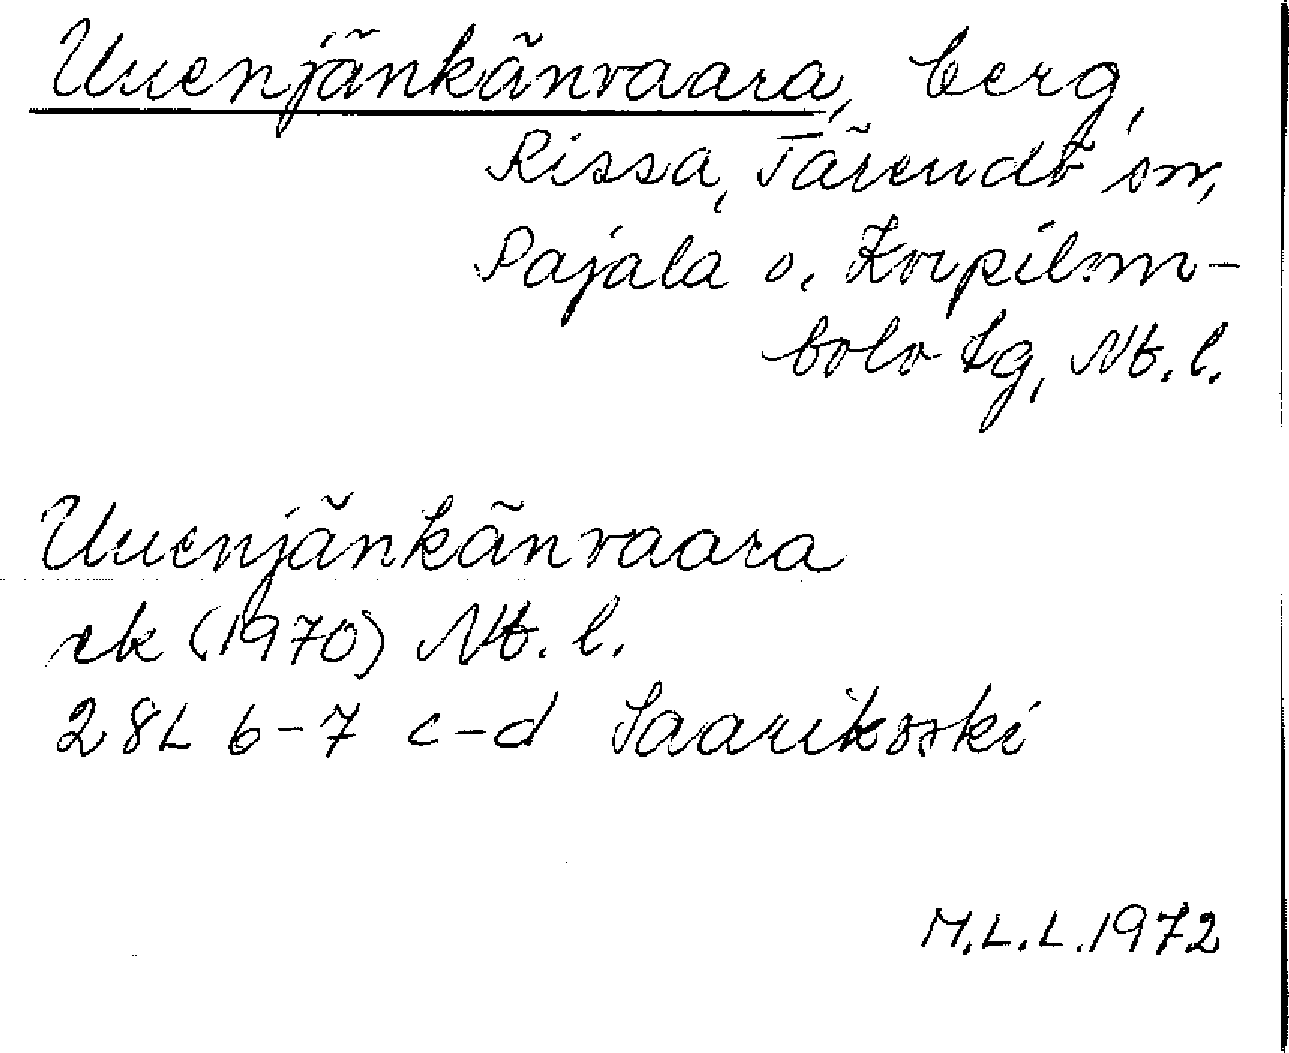 Uuenjänkänvaara, berg,
Rissa, Tärendö sn,
Pajala o. Korpilom-
bolo tg, Nb. l.
Uuenjänkänvaara
ek (1970) Nb. l.
28L 6-7 c-d Saarikoski
M.L.L. 1972